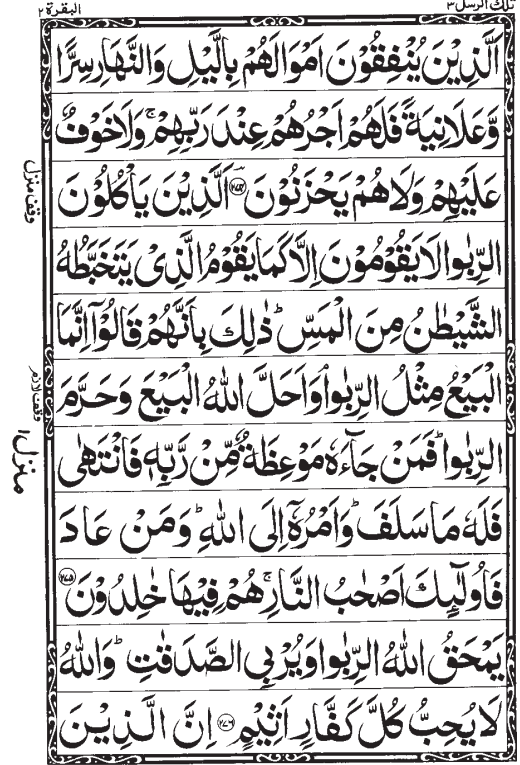 تلك الرسل ٣
البقرة ٢
اَلَّذِيْنَ يُنْفِقُوْنَ اَمْوَالَهُمْ بِالَّيْلِ وَالنَّهَارِ سِرًّا
وَّعَلَانِيَةً فَلَهُمْ اَجْرُهُمْ عِنْدَ رَبِّهِمْ ۚ وَلَا خَوْفٌ
عَلَيْهِمْ وَلَا هُمْ يَحْزَنُوْنَ ﴿۲۷۴﴾ اَلَّذِيْنَ يَاْكُلُوْنَ
الرِّبٰوا لَا يَقُوْمُوْنَ اِلَّا كَمَا يَقُوْمُ الَّذِىْ يَتَخَبَّطُهُ
الشَّيْطٰنُ مِنَ الْمَسِّ ؕ ذٰلِكَ بِاَنَّهُمْ قَالُوْۤا اِنَّمَا
الْبَيْعُ مِثْلُ الرِّبٰوا ۘ وَاَحَلَّ اللّٰهُ الْبَيْعَ وَحَرَّمَ
الرِّبٰوا ؕ فَمَنْ جَآءَهٗ مَوْعِظَةٌ مِّنْ رَّبِّهٖ فَانْتَهٰى
فَلَهٗ مَا سَلَفَ ؕ وَاَمْرُهٗۤ اِلَى اللّٰهِ ؕ وَمَنْ عَادَ
فَاُولٰٓئِكَ اَصْحٰبُ النَّارِ ۚ هُمْ فِيْهَا خٰلِدُوْنَ ﴿۲۷۵﴾
يَمْحَقُ اللّٰهُ الرِّبٰوا وَيُرْبِى الصَّدَقٰتِ ؕ وَاللّٰهُ
لَا يُحِبُّ كُلَّ كَفَّارٍ اَثِيْمٍ ﴿۲۷۶﴾ اِنَّ الَّذِيْنَ
وقف منزل
وقف لازم
منزل ۱